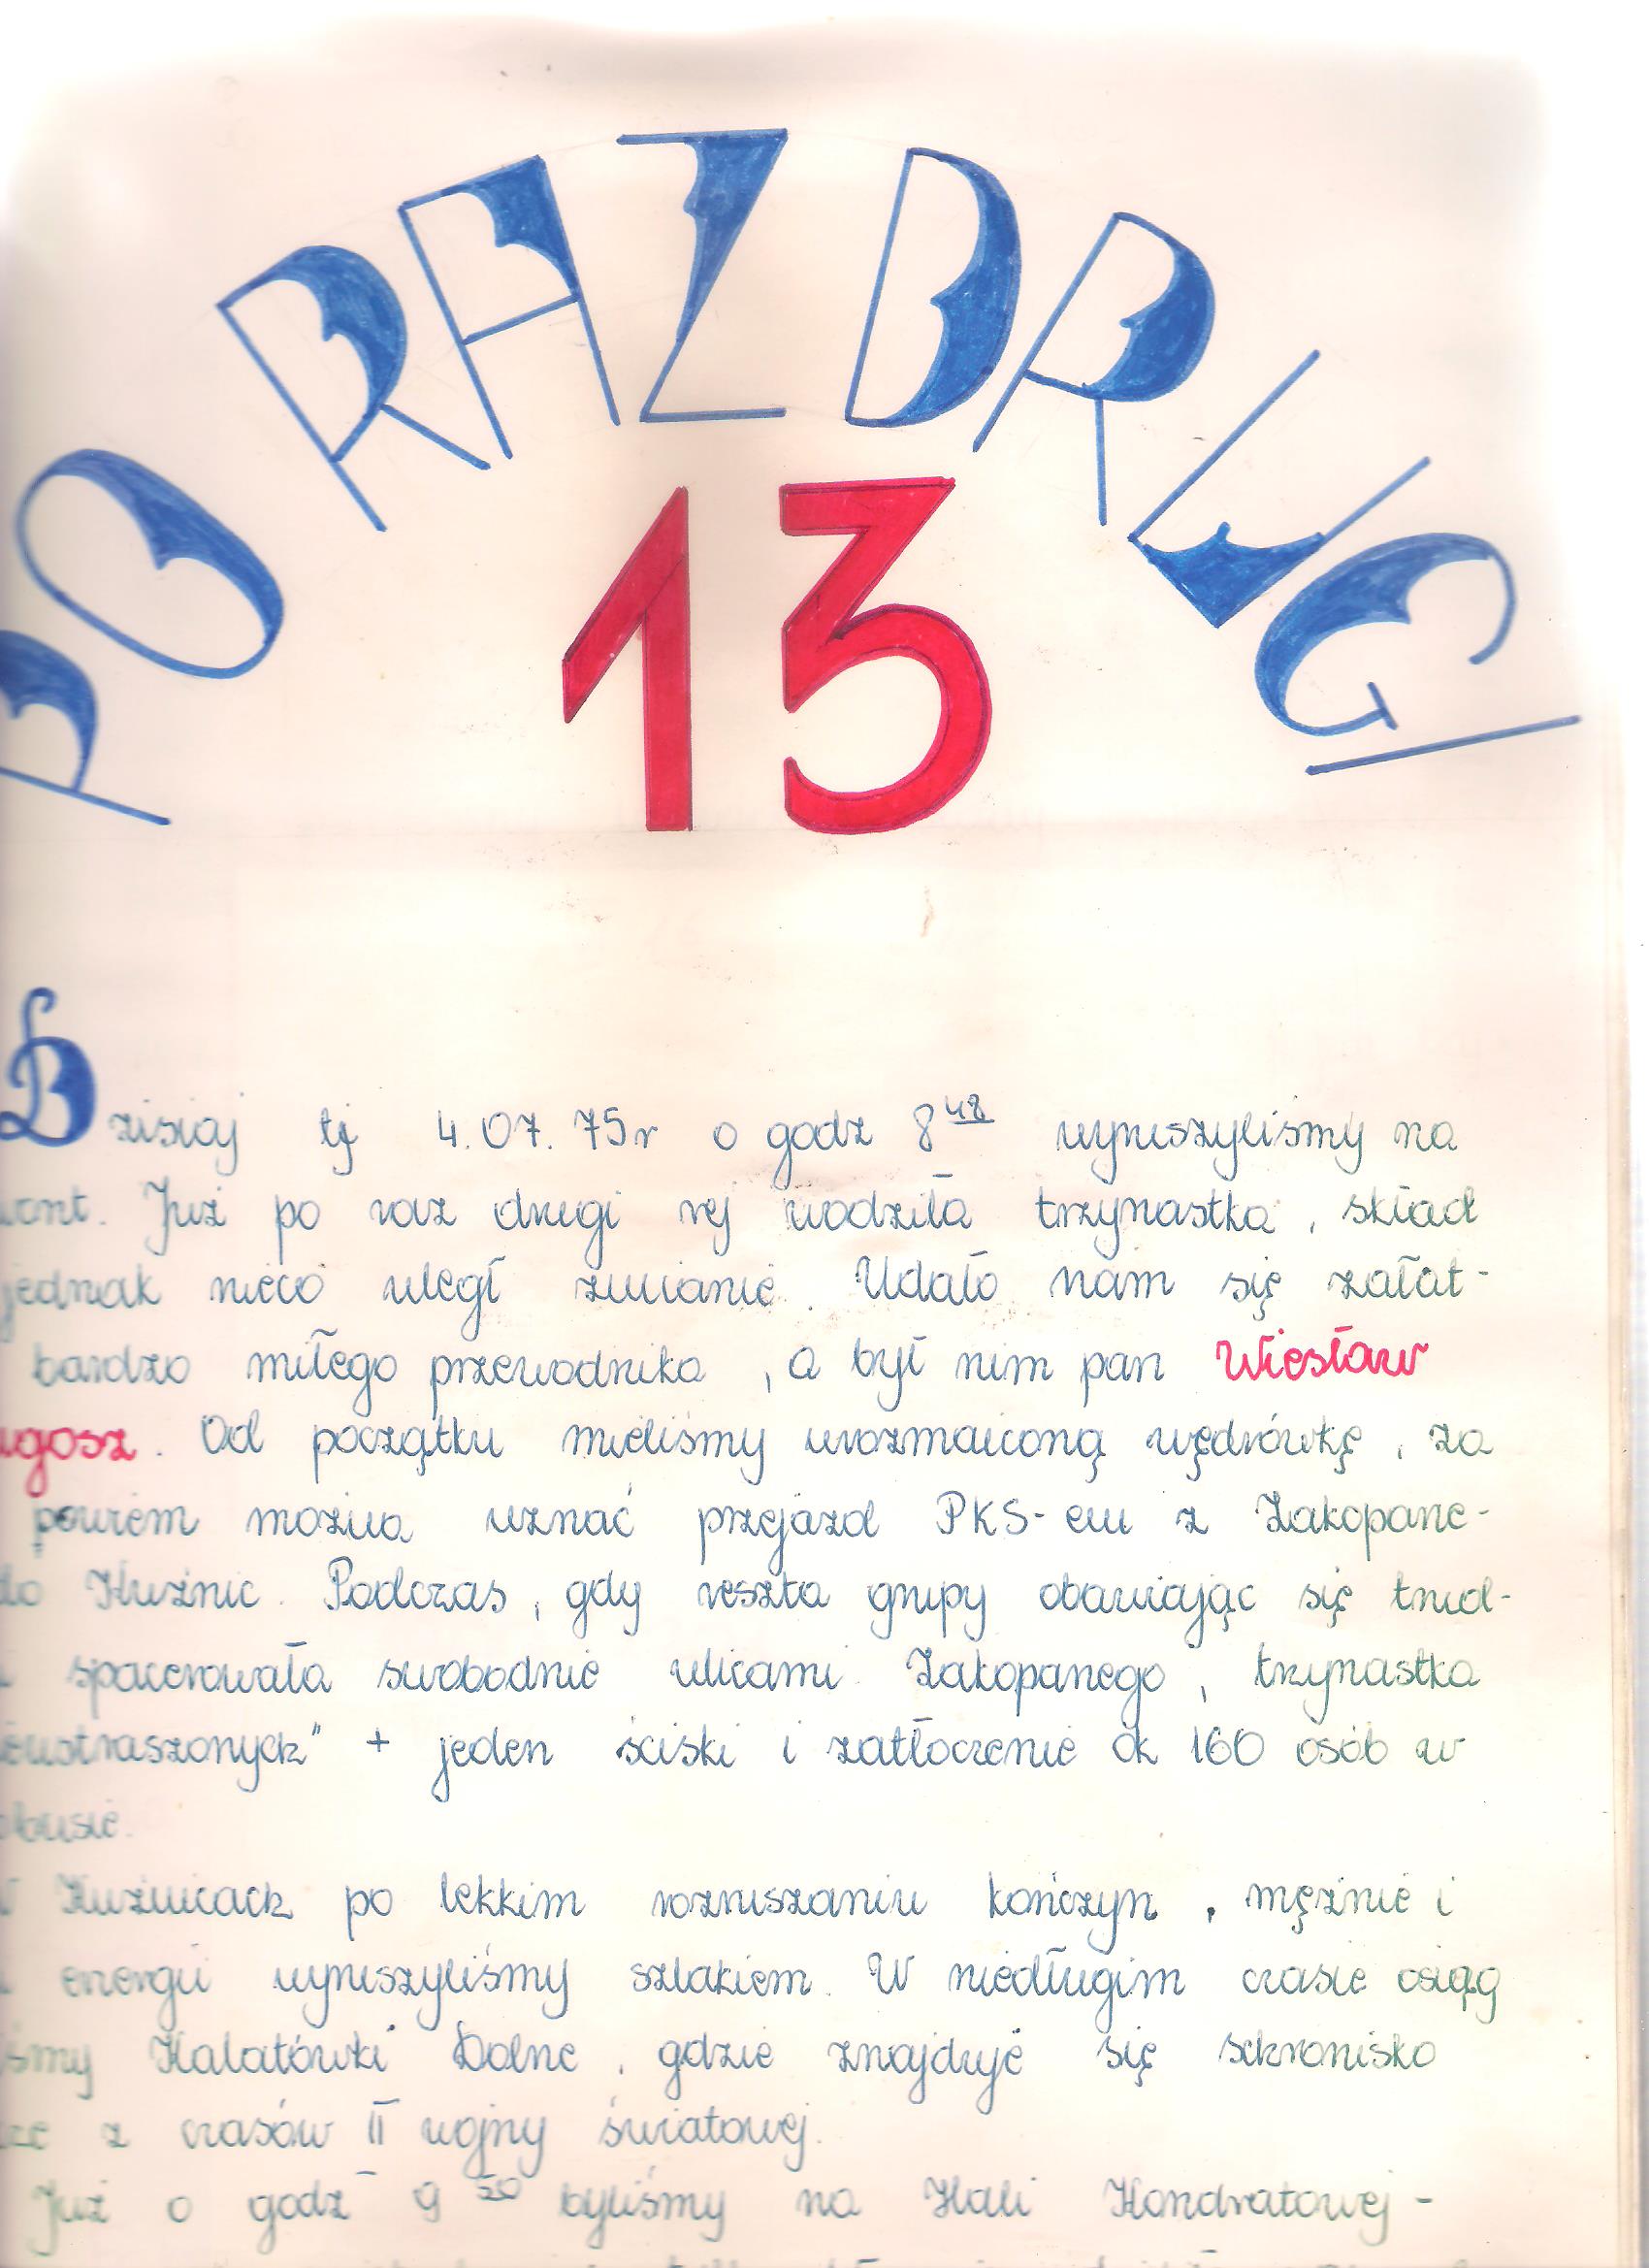 PO RAZ DRUGI
13
Dzisiaj tj 4.07.75r o godz 8⁴⁸ wyruszyliśmy na
wont. Już po raz drugi rej wodziła trzynastka, skład
jednak nieco uległ zmianie. Udało nam się załat-
bardzo miłego przewodnika, a był nim pan Wiesław
ugosz. Od początku mieliśmy urozmaiconą wędrówkę, za
powiem można uznać przejazd PKS-em z Zakopane-
do Kuźnic. Podczas, gdy reszta grupy obawiając się trud-
spacerowała swobodnie ulicami Zakopanego, trzynastka
eustraszonych" + jeden ściski i zatłoczenie ok 160 osób w
obusie.
W Kuźnicach po lekkim rozruszaniu kończyn, mężnie i
energii wyruszyliśmy szlakiem. W niedługim czasie osiąg
śmy Kalatówki Dolne, gdzie znajduje się schronisko
ze z czasów II wojny światowej.
Już o godz 9⁵⁰ byliśmy na Hali Kondratowej-